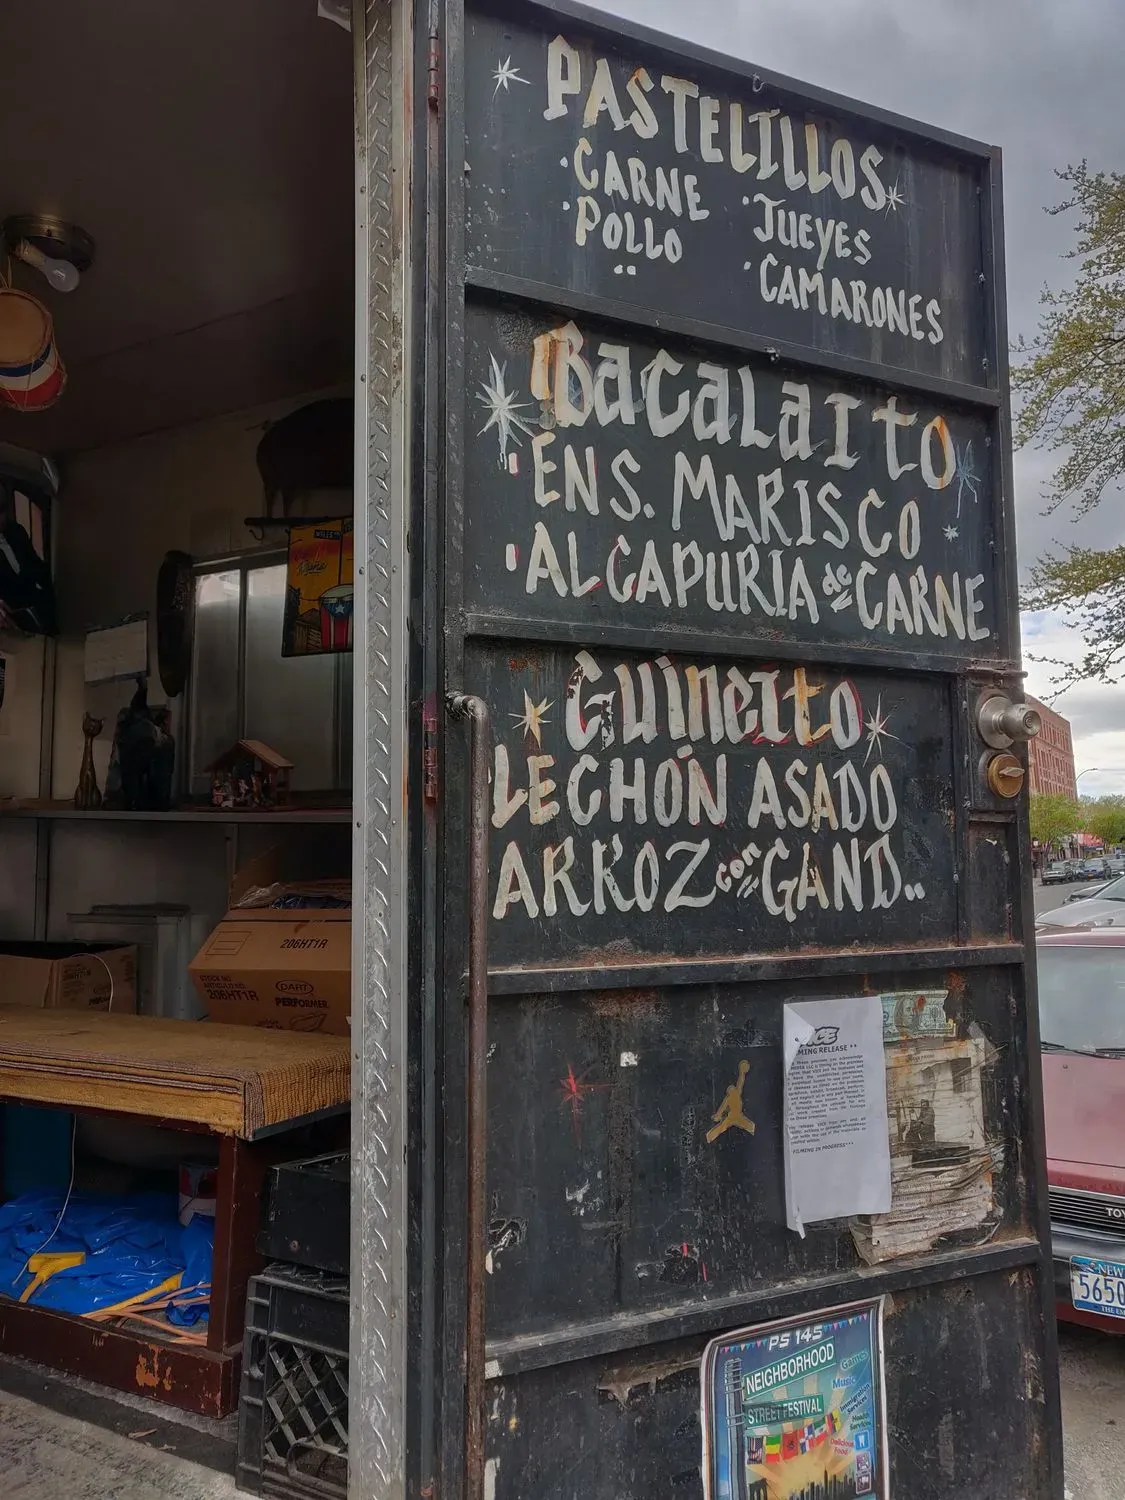 PASTELILLOS
·CARNE
·POLLO
·JUEYES
·CAMARONES
Bacalaito
·ENS. MARISCO
·ALCAPURIA de CARNE
Guineito
LECHÓN ASADO
ARROZ con GAND..
206HT1R
206HT1R
DART
PERFORMER
VICE
RELEASE **
FILMING IN PROGRESS***
PS 145
NEIGHBORHOOD
STREET FESTIVAL
Games
Music
Immigration
Services
Health
Services
Delicious
Food
NEW
5650